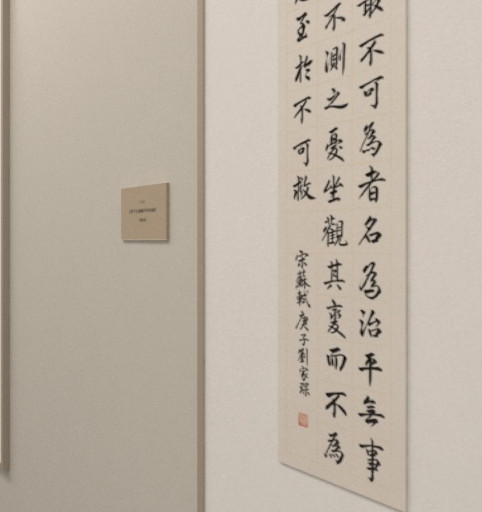 不可為者名為治平無事
不測之憂坐觀其變而不為
至於不可救
宋蘇軾庚子劉家琛